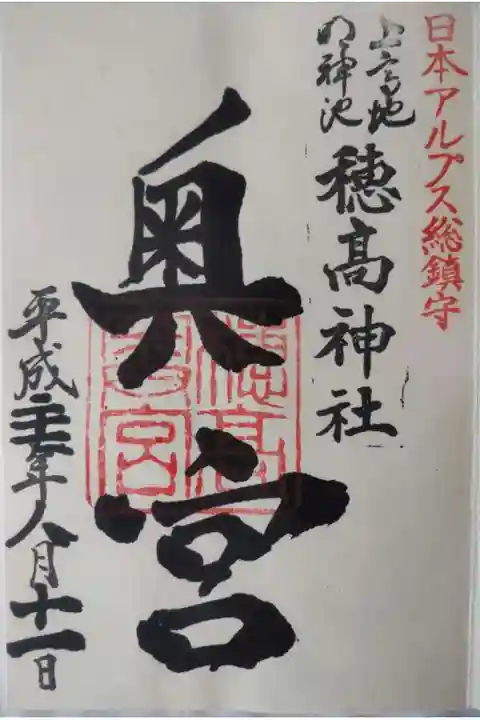 日本アルプス総鎮守
上高地
明神池
穂高神社
奥宮
穂高
奥宮
平成二十年八月十一日